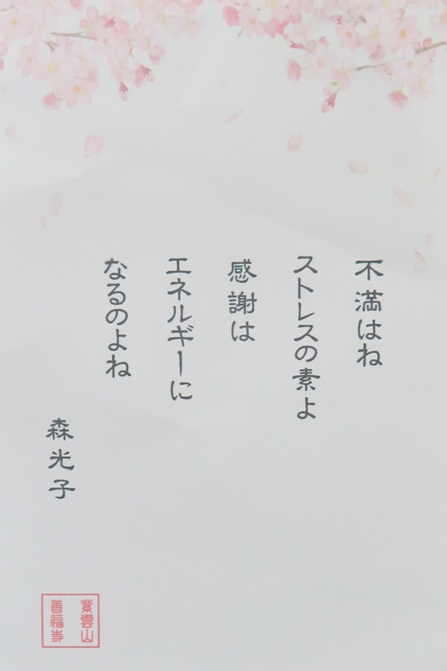 不満はね
ストレスの素よ
感謝は
エネルギーに
なるのよね
森光子
紫雲山
善福寺